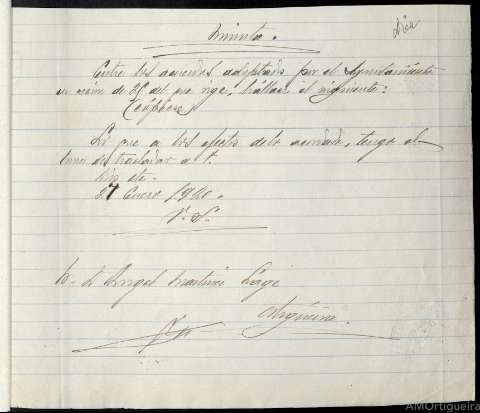 Minuta.
Entre los acuerdos adoptados por el Ayuntamiento
en sesión de 25 del que rige, hállase el siguiente:
(cópiese)
Lo que a los efectos de lo acordado, tengo el
honor de trasladar a V.
Dios etc.
27 Enero 1920.
D. Angel Martinez
AMOrtigueira